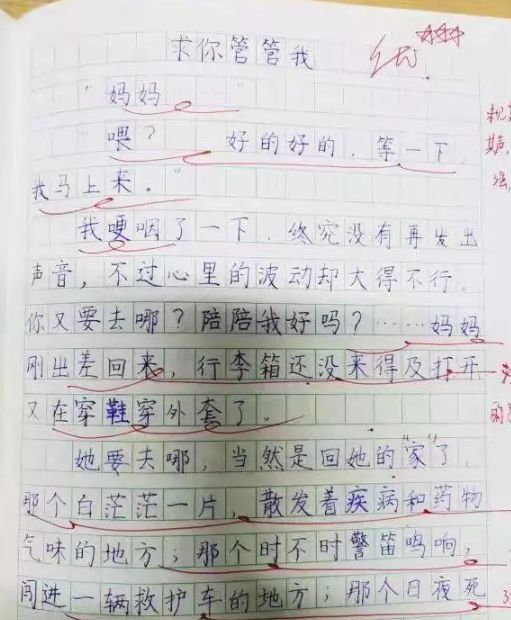 求你管管我
优
“妈妈
“喂？ 好的好的，等一下，
我马上来。”
我哽咽了一下，终究没有再发出
声音，不过心里的波动却大得不行。
你又要去哪？陪陪我好吗？……妈妈
刚出差回来，行李箱还没来得及打开
又在穿鞋穿外套了。
她要去哪，当然是回她的“家”了，
那个白茫茫一片，散发着疾病和药物
气味的地方；那个时不时警笛鸣响，
闯进一辆救护车的地方；那个日夜死